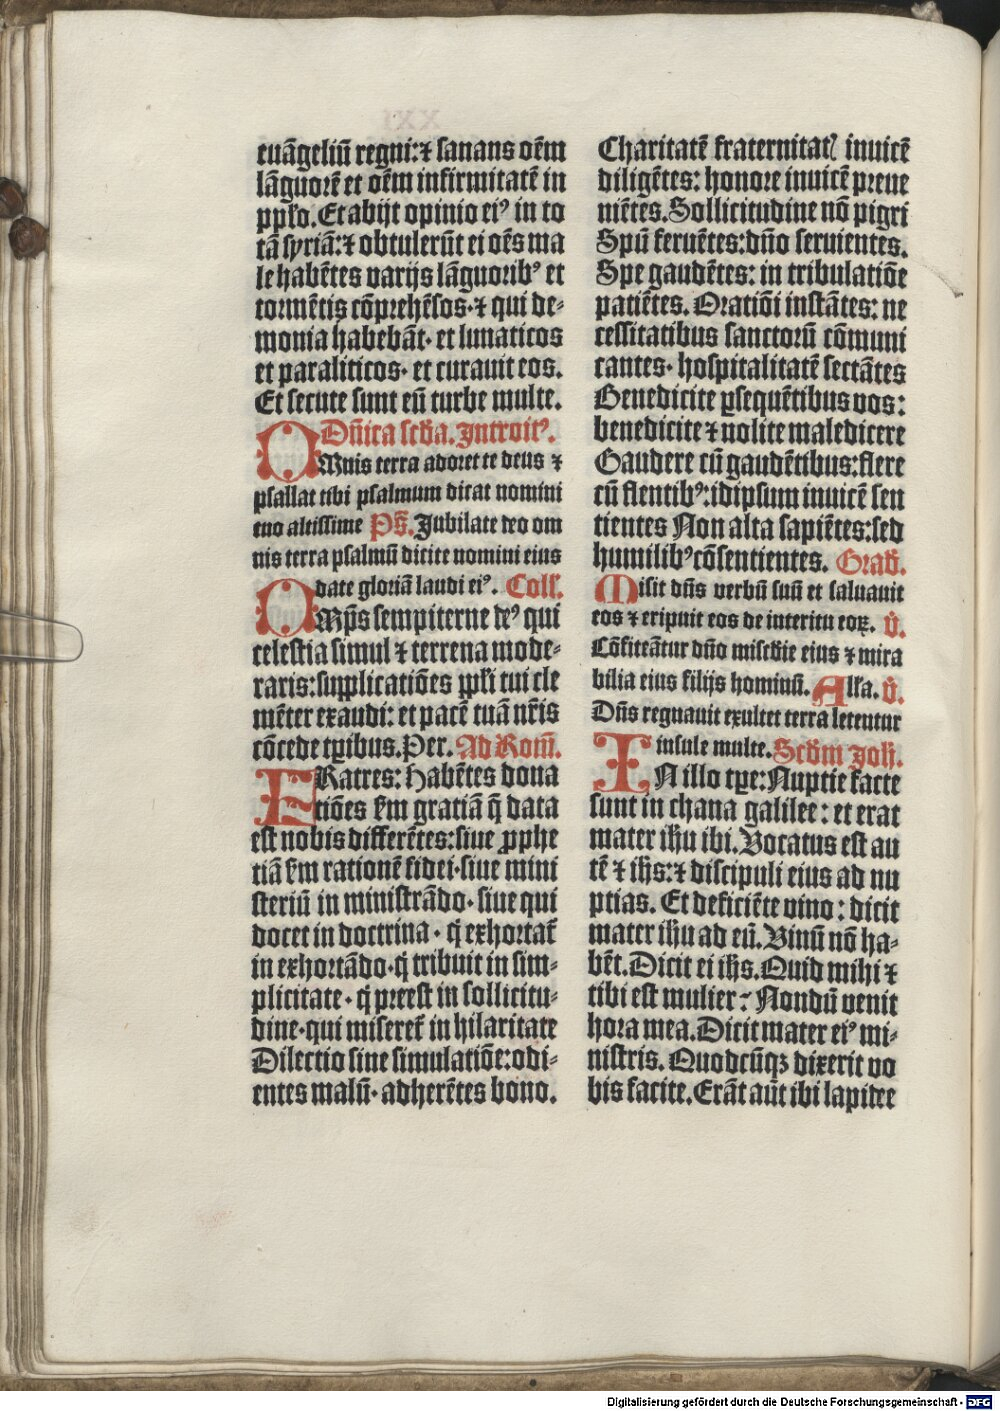 euãgeliũ regni: ⁊ sanans oẽm
lãguorẽ et oẽm infirmitatẽ in
pp̃lo. Et abijt opinio eiꝰ in to
tã syriã: ⁊ obtulerũt ei oẽs ma
le habẽtes varijs lãguoribꝰ et
tormẽtis cõprehẽsos· ⁊ qui de-
monia habebãt· et lunaticos
et paraliticos· et curauit eos.
Et secute sunt eũ turbe multe.
Dñica scďa. Introitꝰ.
OMnis terra adoret te deus ⁊
psallat tibi psalmum dicat nomini
tuo altissime Ps̃. Jubilate deo om
nis terra psalmũ dicite nomini eius
date gloriã laudi eiꝰ. Coll̃.
OMp̃s sempiterne deꝰ qui
celestia simul ⁊ terrena mode-
raris: supplicatiões pp̃li tui cle
mẽter exaudi: et pacẽ tuã nr̃is
cõcede tpibus. Per. Ad Rom̃.
FRatres: Habẽtes dona
tiões ẜm gratiã q̃ data
est nobis differẽtes: siue ꝓphe
tiã ẜm rationẽ fidei· siue mini
steriũ in ministrãdo· siue qui
docet in doctrina· q̃ exhortat̃
in exhortãdo· q̃ tribuit in sim-
plicitate· q̃ preest in sollicitu-
dine· qui miseret̃ in hilaritate
Dilectio sine simulatiõe: odi-
entes malũ· adherẽtes bono.
Charitatẽ fraternitatꝭ inuicẽ
diligẽtes: honore inuicẽ preue
niẽtes. Sollicitudine nõ pigri
Spũ feruẽtes: dño seruientes.
Spe gaudẽtes: in tribulatiõe
patiẽtes. Oratiõi instãtes: ne
cessitatibus sanctorũ cõmuni
cantes· hospitalitatẽ sectãtes
Benedicite ꝑsequẽtibus vos:
benedicite ⁊ nolite maledicere
Gaudere cũ gaudẽtibus: flere
cũ flentibꝰ: idipsum inuicẽ sen
tientes Non alta sapiẽtes: sed
humilibꝰ cõsentientes. Grad̃.
Misit dñs verbũ suũ et saluauit
eos ⁊ eripuit eos de interitu eoꝝ. v̉.
Cõfiteãtur dño miscďie eius ⁊ mira
bilia eius filijs hominũ. Alľa. v̉.
Dñs regnauit exultet terra letentur
insule multe. Scďm Joh̃.
IN illo tpe: Nuptie facte
sunt in chana galilee: et erat
mater ihũ ibi. Vocatus est au
tẽ ⁊ ihs: ⁊ discipuli eius ad nu
ptias. Et deficiẽte vino: dicit
mater ihũ ad eũ. Vinũ nõ ha-
bẽt. Dicit ei ihs. Quid mihi ⁊
tibi est mulier? Nondũ venit
hora mea. Dicit mater eiꝰ mi-
nistris. Quodcũqꝫ dixerit vo
bis facite. Erãt aũt ibi lapidee
Digitalisierung gefördert durch die Deutsche Forschungsgemeinschaft - DFG